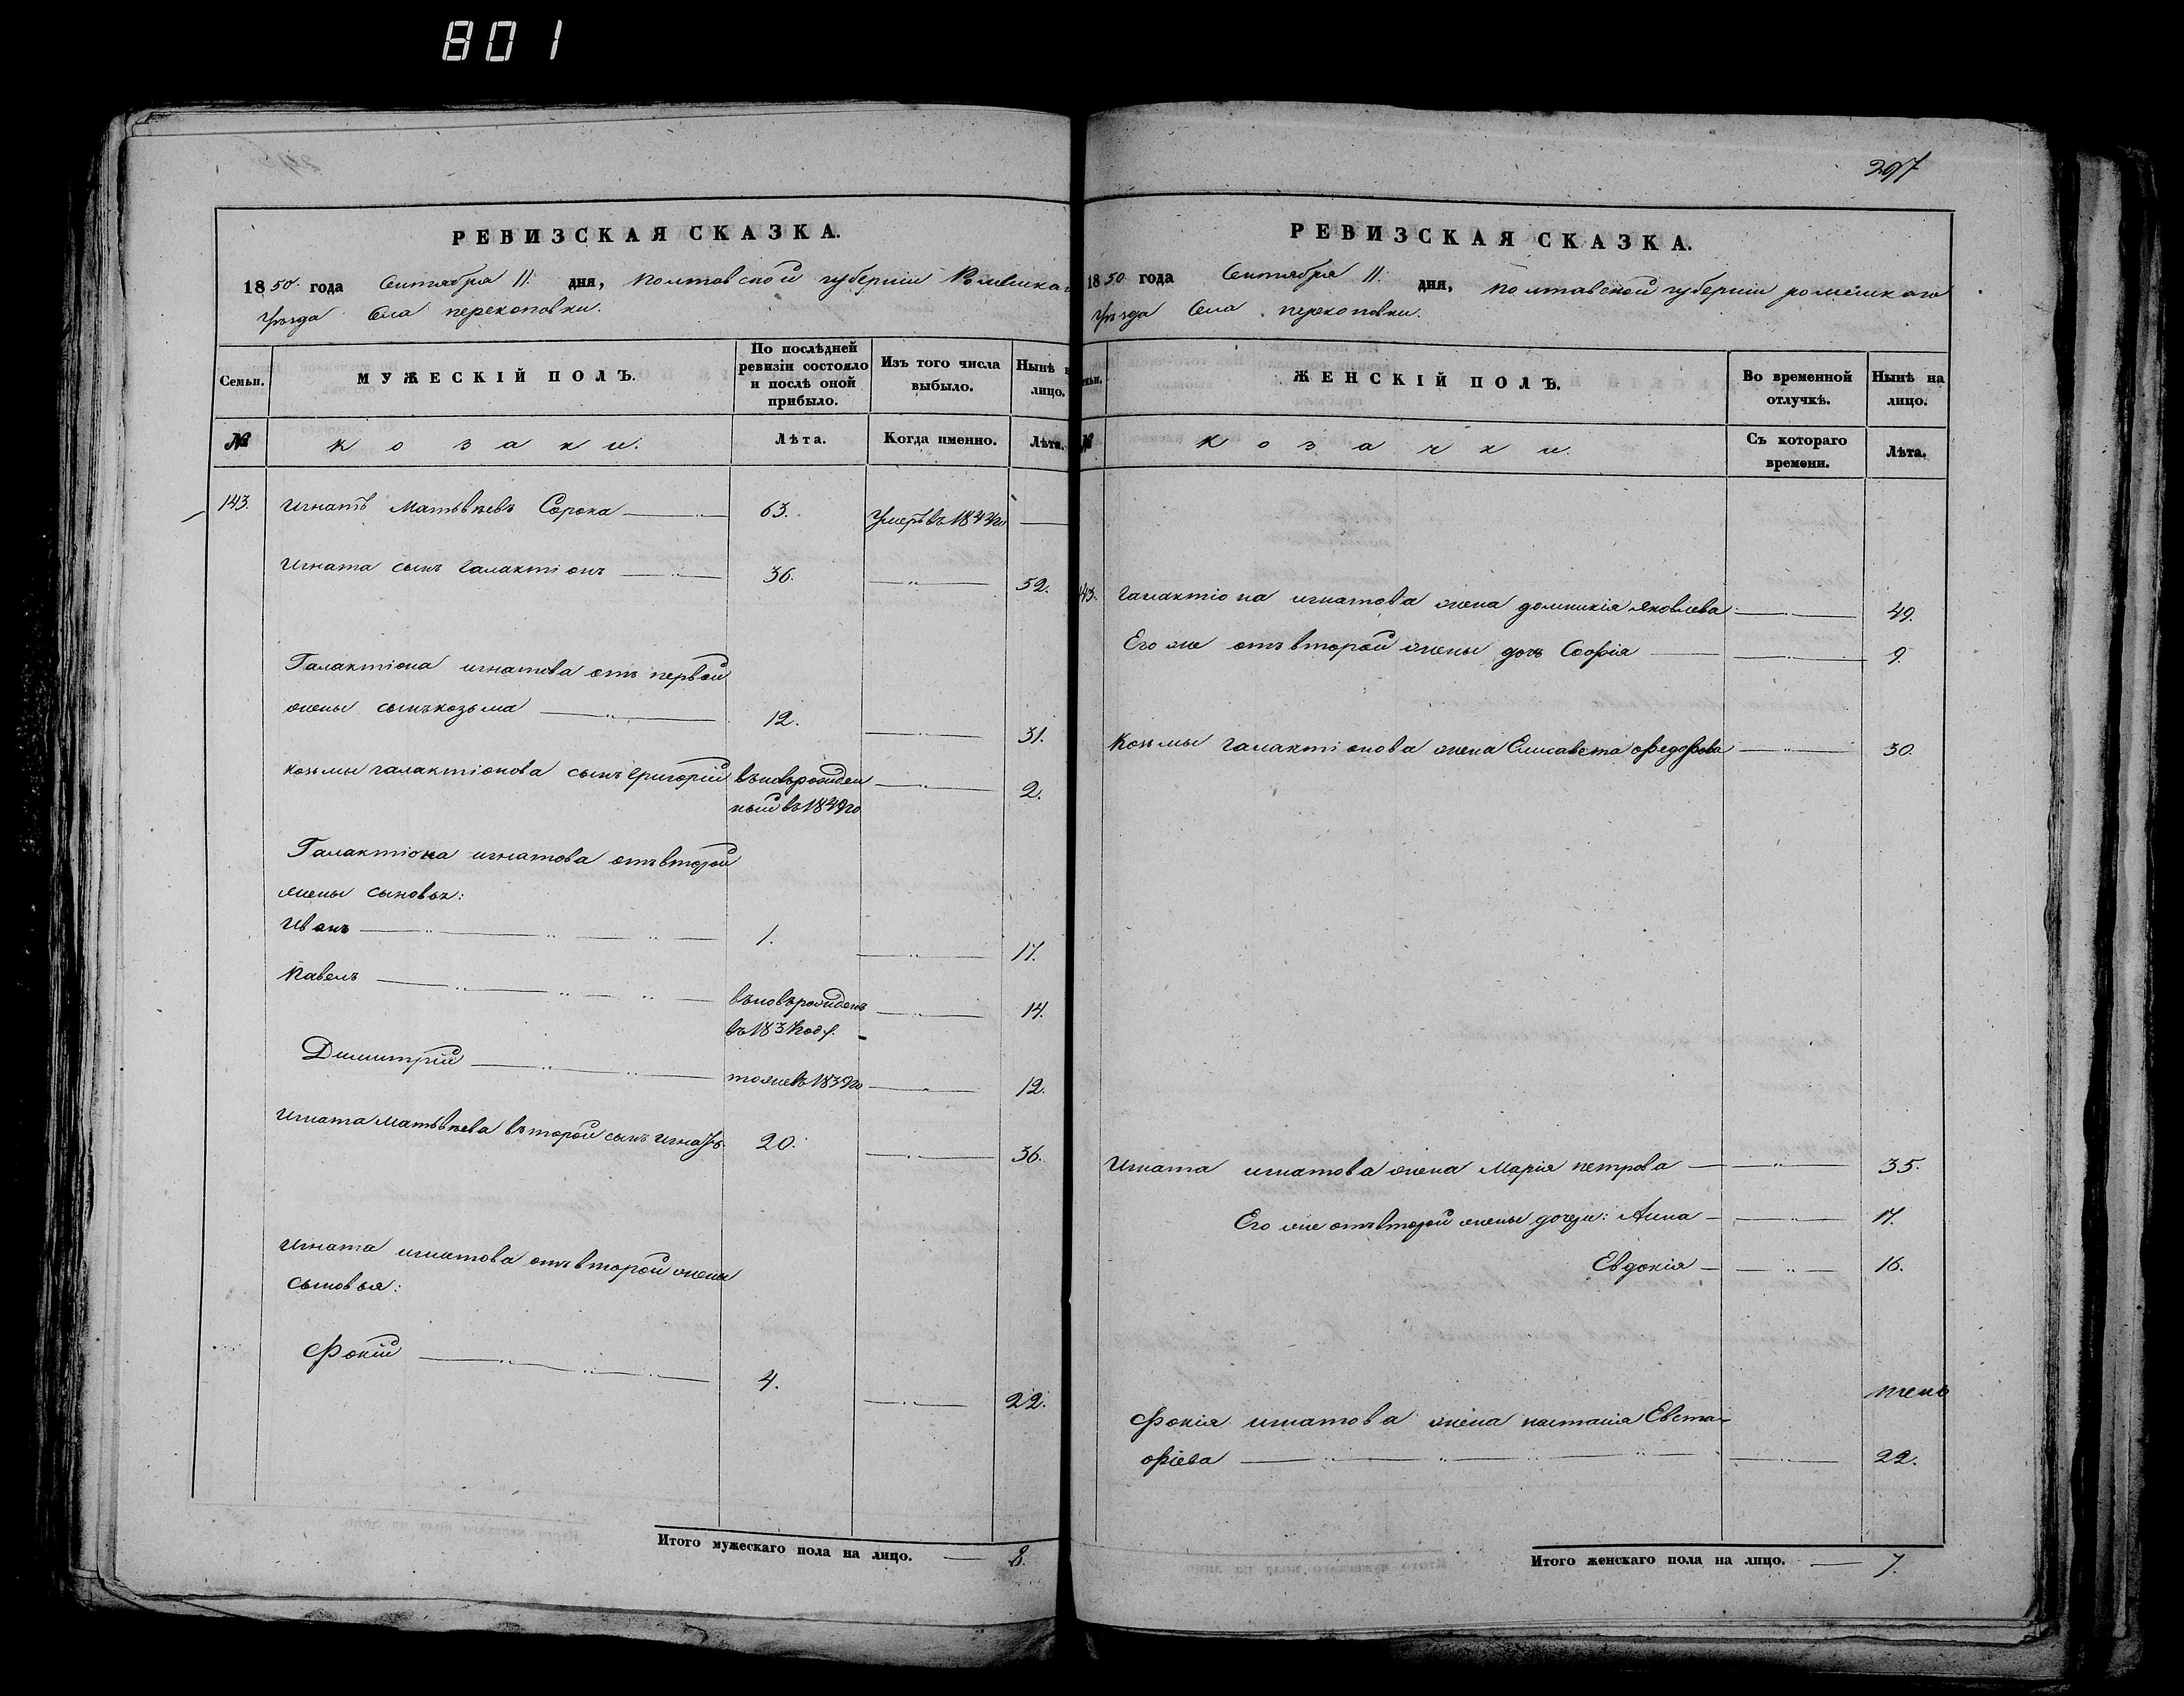 801
297
РЕВИЗСКАЯ СКАЗКА.
1850 года Сентября 11. дня, полтавской губерніи Роменска
уѣзда Села перекоповки.
Семьи.
МУЖЕСКІЙ ПОЛЪ.
По послѣдней ревизіи состояло и послѣ оной прибыло.
Изъ того числа выбыло.
Нынѣ н лицо.
№
козаки.
Лѣта.
Когда именно.
Лѣта.
143. Игнатъ Матвѣевъ Сорока 63. Умеръ въ
Игната сынъ Галактіонъ 36. 52.
Галактіона игнатова отъ первой
жены сынъ козьма 12. 31.
козьмы галактіонова сынъ Григорій въновьрожден 2.
ный въ 1849го
Галактіона игнатова отъ второй
жены сыновья:
Иванъ 1. 17.
Павелъ въновърожденъ 14.
въ 1837году.
Димитрій тожевъ1839го 12.
Игната Матвѣева второй сынъ Игнатъ 20. 36.
Игната игнатова отъ второй жены
сыновья:
Фокій 4. 22.
Итого мужескаго пола на лицо. 8.
РЕВИЗСКАЯ СКАЗКА.
1850 года Сентября 11. дня, полтавской губерніи роменскаго
уѣзда Села перекоповки.
ЖЕНСКІЙ ПОЛЪ.
Во временной отлучкѣ.
Нынѣ на лицо.
№
козачки.
Съ котораго времени.
Лѣта.
143. Галактіона игнатова жена домникія яковлева 49.
Его же отъ второй жены дочь Софія 9.
Козьмы галактіонова жена Елисавета федорова 30.
Игната игнатова жена Марія петрова 35.
Его же отъ второй жены дочери: Анна 17.
Евдокія 16.
Фокія игнатова жена настасія Евста-
фіева 22.
Итого женскаго пола на лицо. 7.